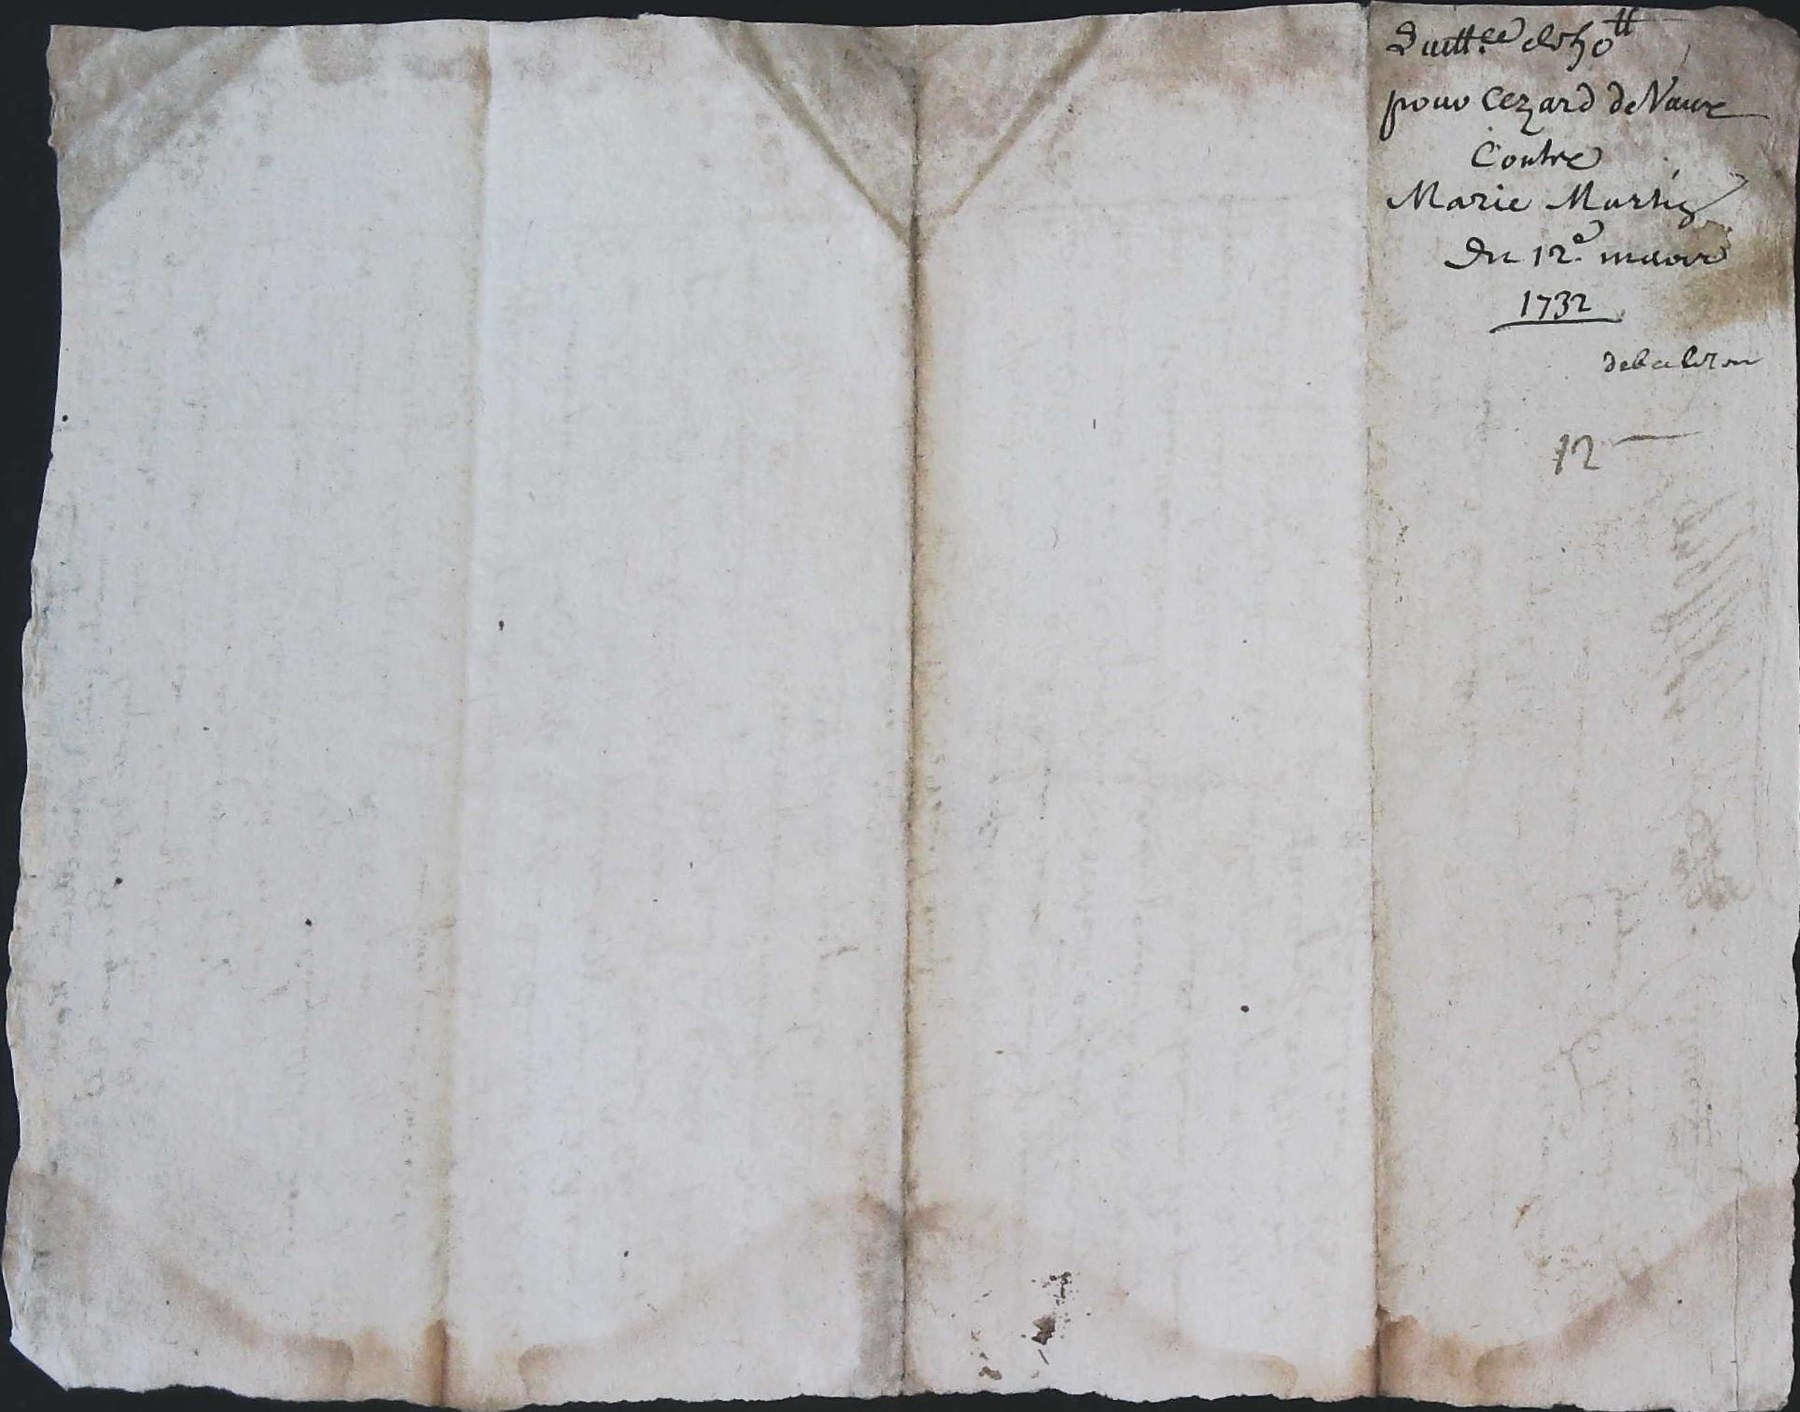 Quitt.ce de 50 ₶
pour Cezard de Vaux
Contre
Marie Martin
Du 12.e mars
1732
12